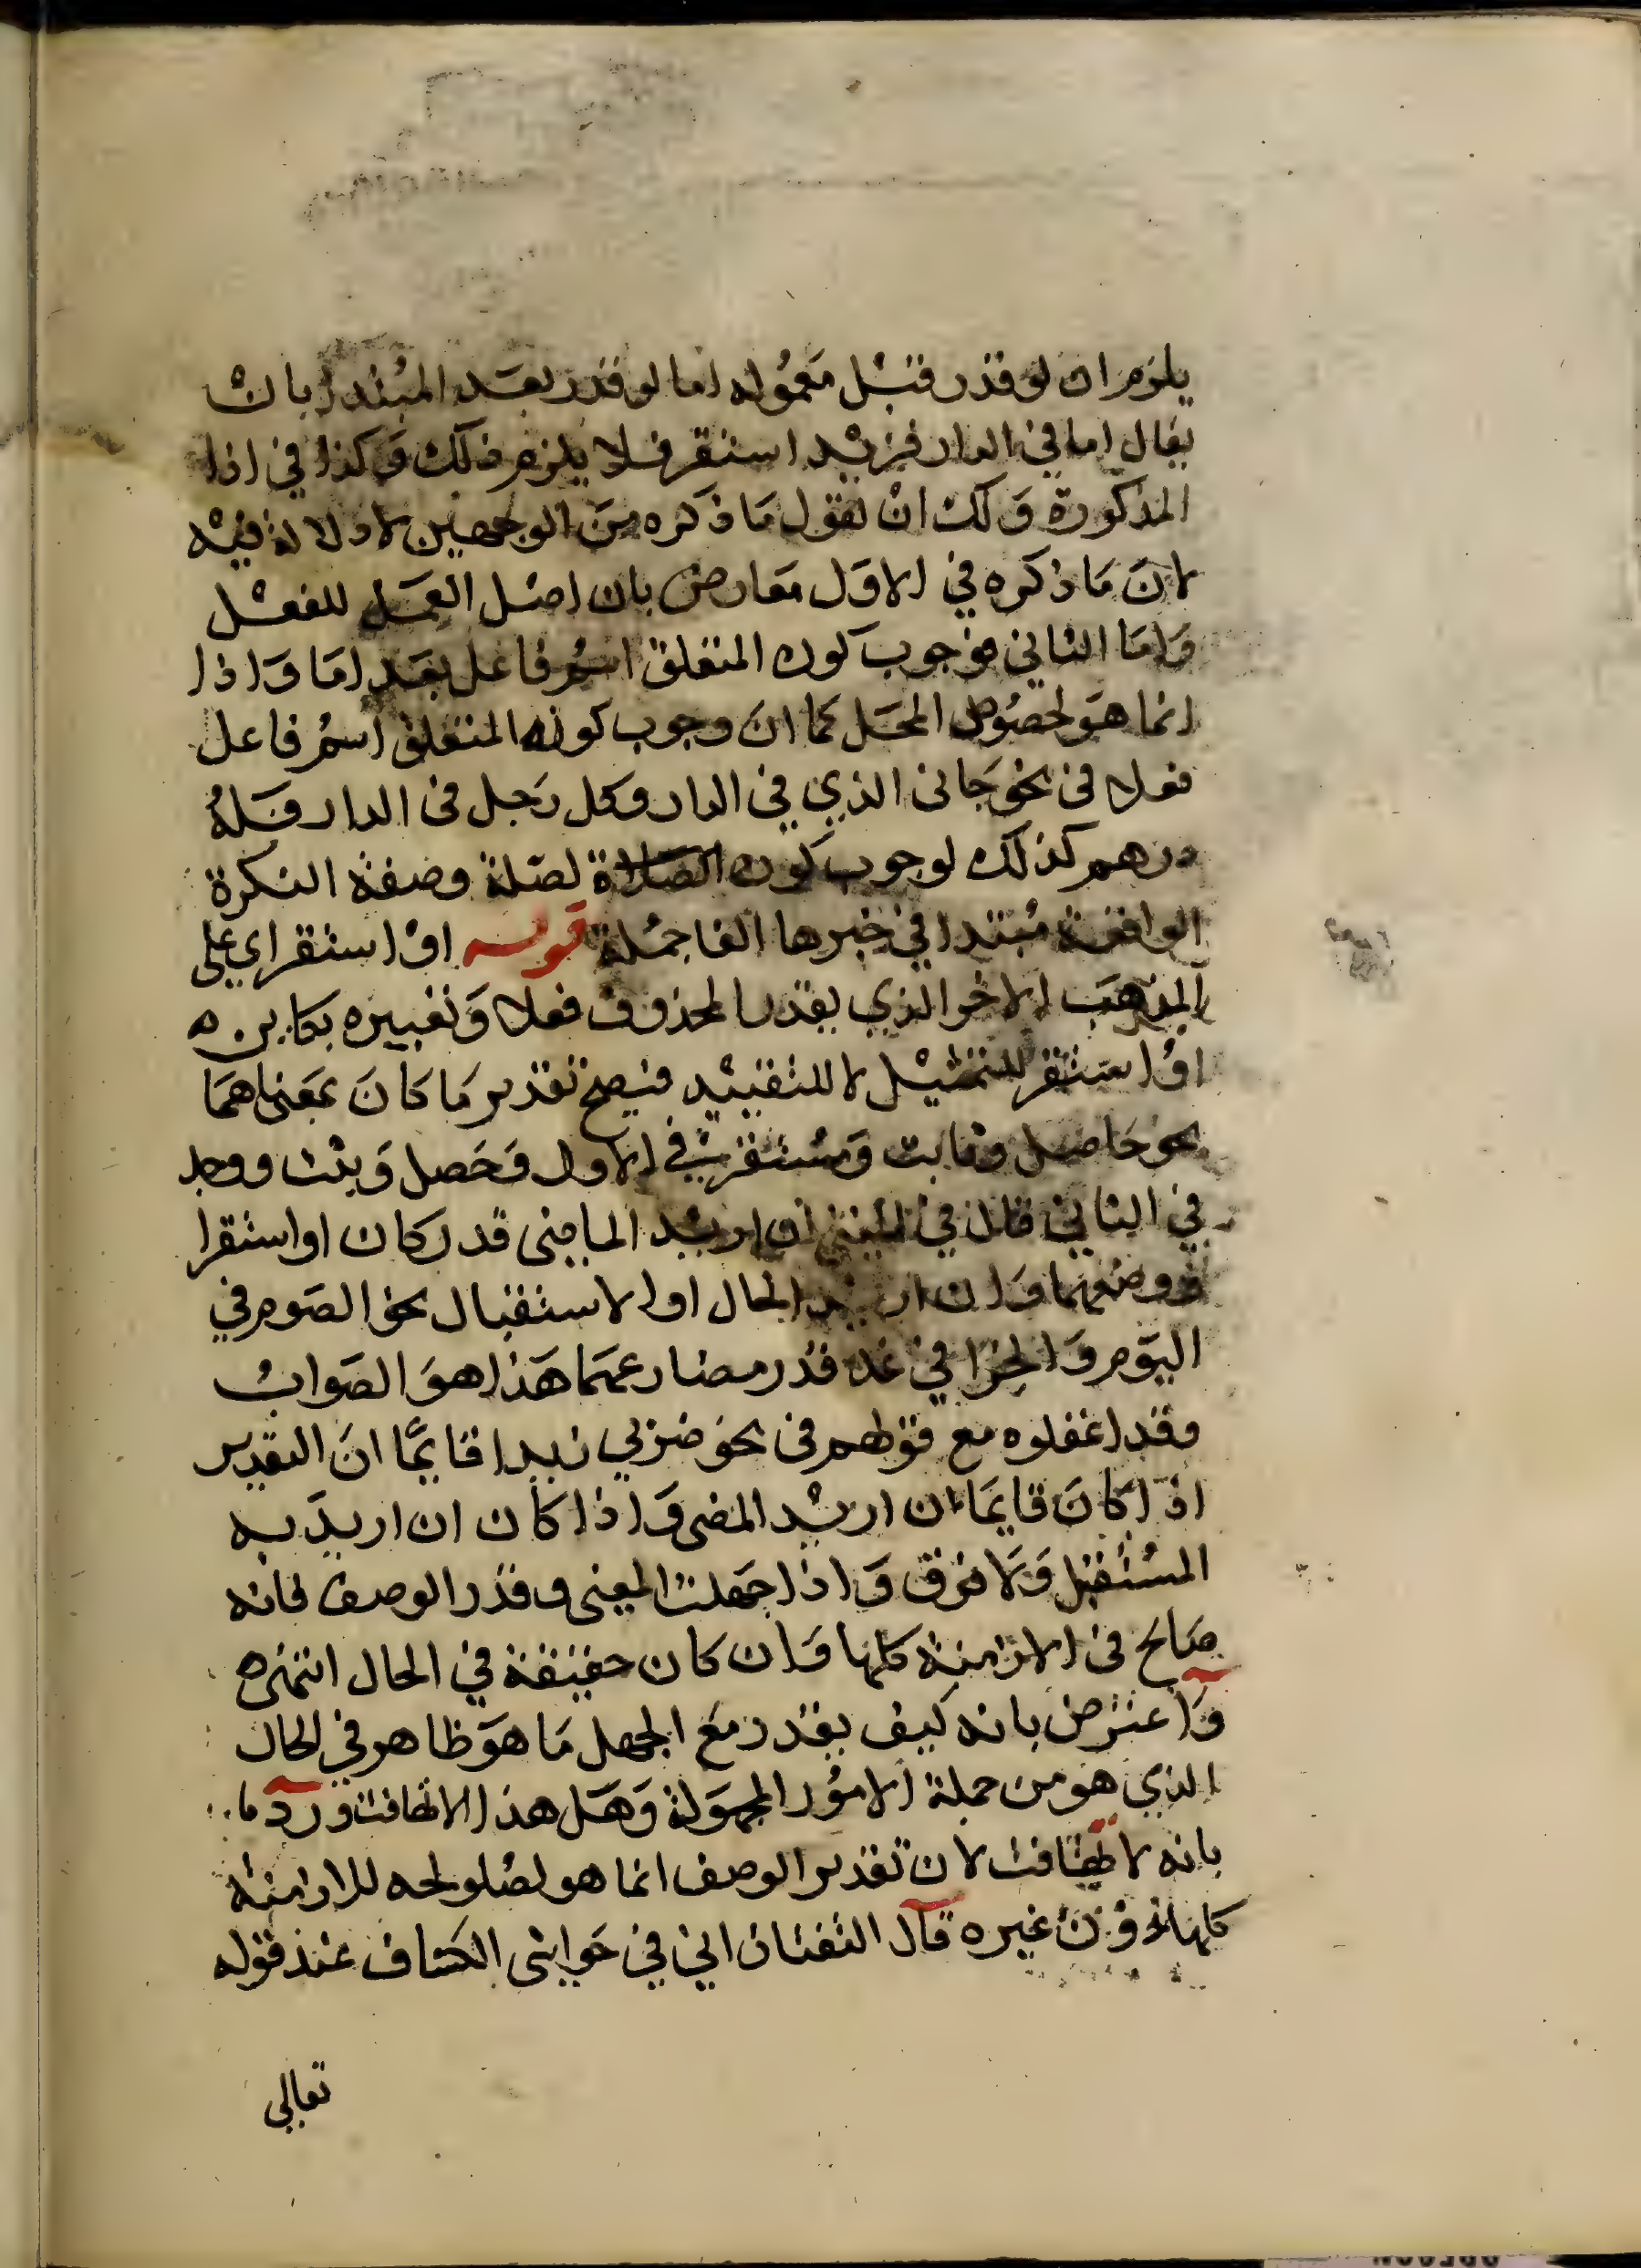 يلزم ان لو قدر قبل معموله اما لو قدر بعد المبتدا بان
يقال اما في الدار فزيد استقر فلا يلزم ذلك وكذا في اذا
المذكورة ولك ان تقول ما ذكره من الوجهين لا دلالة فيه
لان ما ذكره في الاول معارض بان اصل العمل للفعل
واما الثاني فوجوب كون المتعلق اسم فاعل بعد اما واذا
انما هو لخصوص المحل كما ان وجوب كونه المتعلق اسم فاعل
فعلا في نحو جاني الذي في الدار وكل رجل في الدار فله
درهم كذلك لوجوب كون الصلاة لصلة وصفة النكرة
الواقعة مبتدا في خبرها الفا جملة قوله او استقر اي على
المذهب الاخر الذي يقدر المحذوف فعلا وتعبيره بكاين ه
او استقر للتمثيل لا للتقييد فيصح تقدير ما كان بمعناهما
نحو حاصل وثابت ومستقر في الاول وحصل وثبت ووجد
في الثاني قال في المغني ان اريد الماضي قدر كان او استقر ا
ووصفهما وان اريد الحال او الاستقبال نحو الصوم في
اليوم والجزا في غد قدر مضارعهما هذا هو الصواب
وقد اغفلوه مع قولهم في نحو ضربي زيدا قايما ان التقدير
اذ كان قايما ان اريد المضي واذا كان ان اريد به
المستقبل ولا فرق واذا جهلت المعنى وقدر الوصف فانه
صالح في الازمنة كلها وان كان حقيقة في الحال انتهى ه
واعترض بانه كيف يقدر مع الجهل ما هو ظاهر في الحال
الذي هو من جملة الامور المجهولة وهل هذا الا تهافت ورد
بانه لا تهافت لان تقدير الوصف انما هو لصلوحه للازمنة
كلها دون غيره قال التفتازاني في حواشي الكشاف عند قوله
تعالى